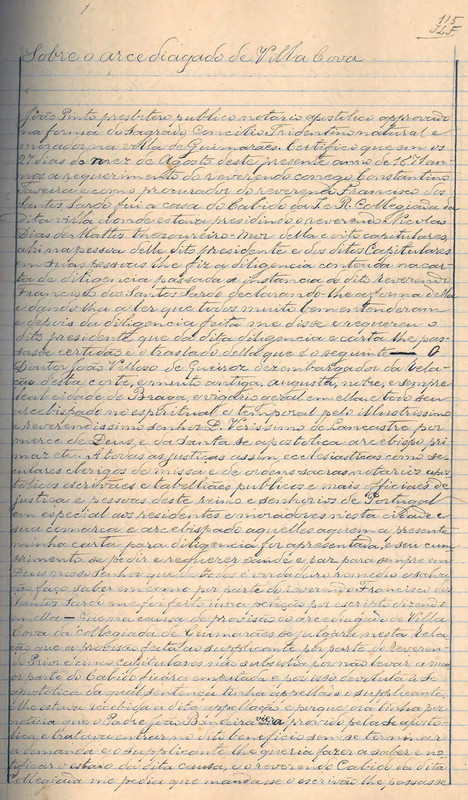 115
Sobre o arcediagado de Villa Cova
João Pinto presbitero publico notario apostolico approvado
na forma do Sagrado Concilio Tridentino natural e
morador na villa de Guimarães. Certifico que em os
27 dias do mez de Agosto deste presente anno de 1671 an-
nos a requerimento do reverendo conego Constantino
e como procurador do reverendo Francisco dos
Santos Sardo fui a casa do Cabido da I. e R. Collegiada da
dita villa donde estava presidindo o reverendo Nicolau
Dias de Mattos thezoureiro-mor della e oito capitulares,
ahi na pessoa delle dito presidente e dos ditos Capitulares
em suas pessoas lhe fiz a diligencia contida na car-
ta de diligencia passada a instancia do dito reverendo
Francisco dos Santos Sardo declarando-lhe a forma della
e dando-lha a ler que todos muito bem entenderam
e depois da diligencia feita me disse e requereu o
dito presidente que da dita diligencia e carta lhe pas-
sasse certidão e o traslado della que é o seguinte — O
Doutor João Velloso de Queiroz dezembargador da Rela-
ção desta côrte, e muito antiga, augusta, nobre, e sempre
leal cidade de Braga, e vigario geral em ella, e todo seu
arcebispado no espiritual e temporal pelo illustrissimo
e reverendissimo senhor D. Verissimo de Lancastro por
merce de Deus, e da Santa Sé apostolica arcebispo pri-
maz etc. A todas as justiças assim ecclesiasticas como se-
culares clerigos de missa e de ordens sacras notarios apos-
tolicos escrivães e tabelliães publicos e mais officiaes de
justiça e pessoas deste reino e senhorios de Portugal
em especial aos residentes e moradores nesta cidade e
sua comarca e arcebispado aquelles a quem a presente
minha carta para diligencia for apresentada, e seu cum-
primento se pedir e requerer saude e paz para sempre em
Deus nosso Senhor que de todos é verdadeiro remedio e salva-
ção faço saber em como por parte do reverendo Francisco dos
Santos Sardo me foi feito uma petição por escripto dizendo
em ella — Que na causa de provisão do arcediagado de Villa
Cova da collegiada de Guimarães se julgara nesta Rela-
ção que a provisão feita ao supplicante por parte do reveren-
do Prior e uns capitulares não subsistia por não levar a ma-
ior parte do Cabido ficaria empatada e por isso devoluta à Sé
apostolica da qual sentença tinha appellado o supplicante,
e lhe estava recebida a dita appellação e porque ora tinha por
noticia que o Padre João Bandeira vinha provido pela Sé aposto-
lica, e tratava entrar no dito beneficio sem se terminar
a demanda e o supplicante lhe queria fazer a saber e no-
tificar o estado da dita causa, e o reverendo Cabido da dita
Collegiada me pedia que mandasse o escrivão lhe passasse